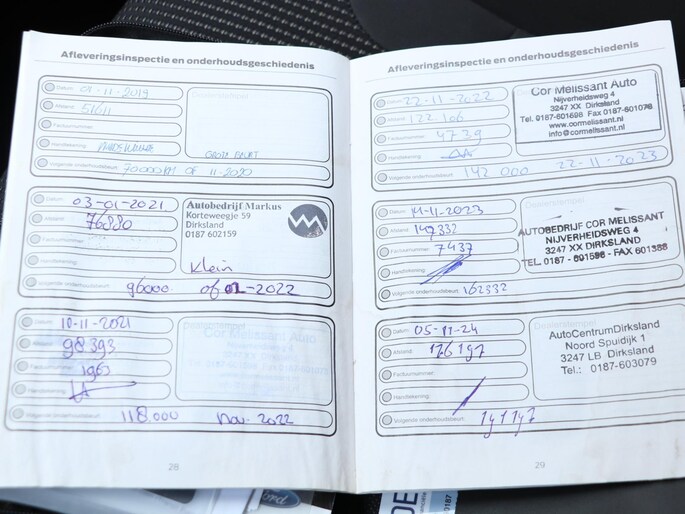 Afleveringsinspectie en onderhoudsgeschiedenis
Datum: 01-11-2019
Afstand: 51611
Factuurnummer:
Handtekening:
GROTE BEURT
Volgende onderhoudsbeurt: 70000 KM OF 11-2020
Datum: 03-01-2021
Afstand: 76880
Factuurnummer:
Handtekening:
Autobedrijf Markus
Korteweegje 59
Dirksland
0187 602159
Klein
Volgende onderhoudsbeurt: 96000 of 01-2022
Datum: 10-11-2021
Afstand: 98393
Factuurnummer: 1963
Handtekening:
Cor Melissant Auto
Volgende onderhoudsbeurt: 118.000 nov. 2022
28
Afleveringsinspectie en onderhoudsgeschiedenis
Datum: 22-11-2022
Afstand: 122 106
Factuurnummer: 4739
Handtekening:
Cor Melissant Auto
Nijverheidsweg 4
3247 XX Dirksland
Tel. 0187-601598 Fax 0187-601078
www.cormelissant.nl
info@cormelissant.nl
Volgende onderhoudsbeurt: 142 000 22-11-2023
Datum: 14-11-2023
Afstand: 147332
Factuurnummer: 7437
Handtekening:
AUTOBEDRIJF COR MELISSANT
NIJVERHEIDSWEG 4
3247 XX DIRKSLAND
TEL. 0187 - 601598 - FAX 601388
Volgende onderhoudsbeurt: 162332
Datum: 05-11-24
Afstand: 176197
Factuurnummer:
Handtekening:
AutoCentrumDirksland
Noord Spuidijk 1
3247 LB Dirksland
Tel.: 0187-603079
Volgende onderhoudsbeurt: 191197
29
Ford
DE
0187